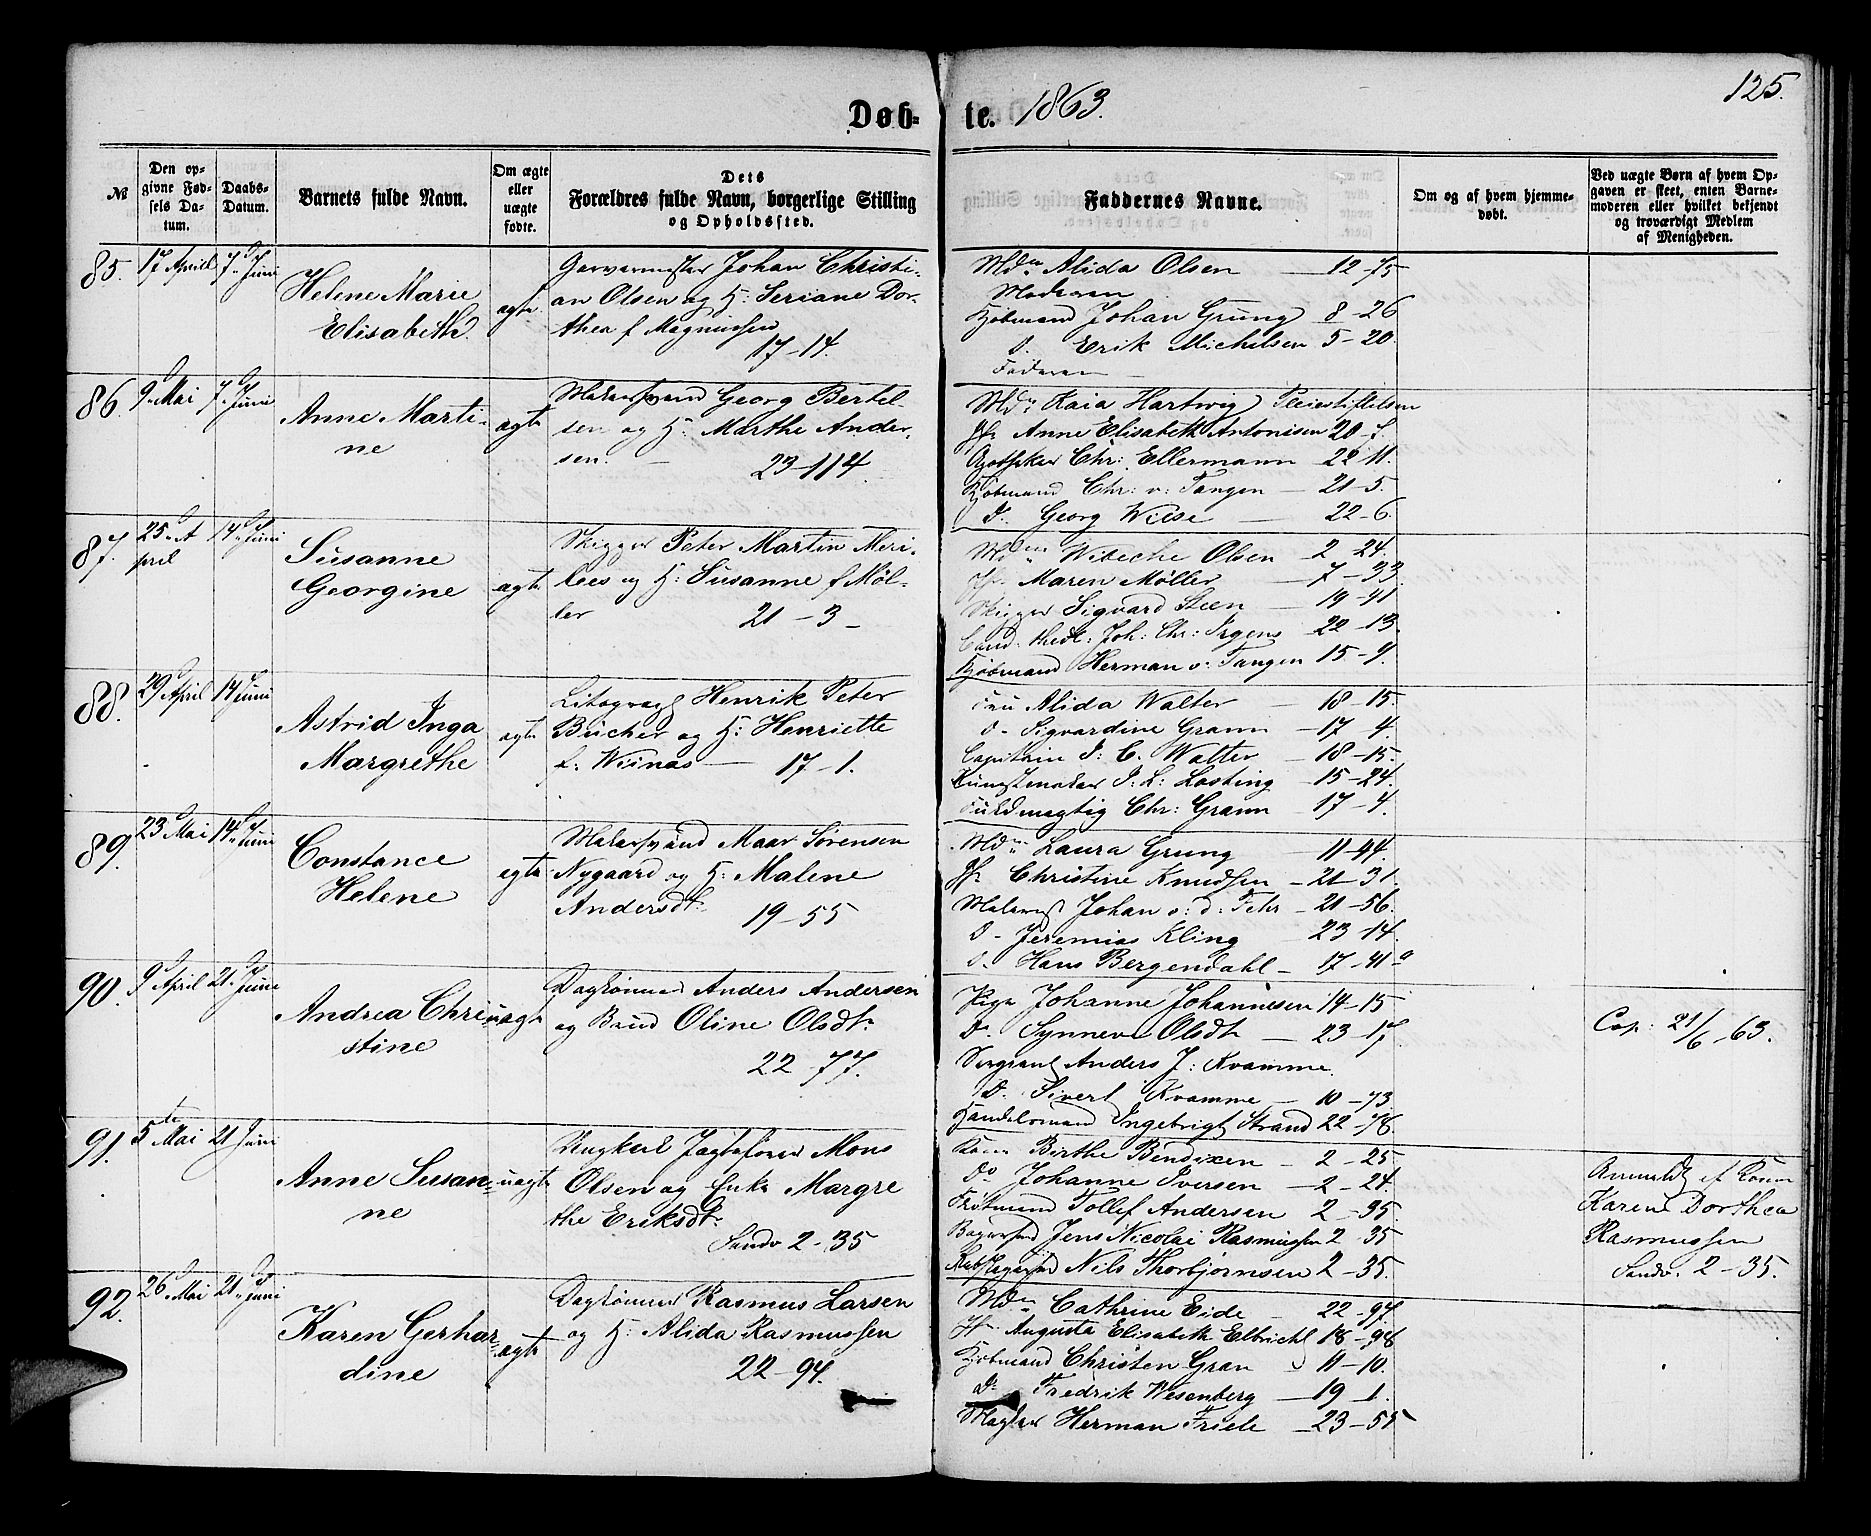 125.
Døb- te. 1863.
№
Den opgivne Fødsels Datum.
Daabs-Datum.
Barnets fulde Navn.
Om ægte eller uægte fødte.
Dets Forældres fulde Navn, borgerlige Stilling og Opholdssted.
Faddernes Navne.
Om og af hvem hjemmedøbt.
Ved uægte Børn af hvem Opgaven er skeet, enten Barnemoderen eller hvilket bekjendt og troværdigt Medlem af Menigheden.
85. 17 April 7 Juni
Helene Marie
Elisabeth
ægte
Garvermester Johan Christi-
an Olsen og H: Seriane Dor-
thea f Magnussen
17-14.
Mdm Alida Olsen 12-75
Moderen
Kjøbmand Johan Grung 8-26
D. Erik Michelsen 5-20.
Faderen
86. 9 Mai 7 Juni
Anne Marti-
ne
ægte
Georg Bertel-
sen og H: Marthe Ander-
sen. 23-114
Mdm Kaia Hartwig Pleiestiftelsen
Jfr Anne Elisabeth Antonisen 20-7.
Apotheker Chr: Ellermann 22-11.
Kjøbmand Chr: v: Tangen 21-5.
D. Georg Wiese 22-6.
87. 25 A-
pril 14 Juni
Susanne
Georgine
ægte
Skipper Peter Martin Meri-
lees og H: Susanne f Møl-
ler 21-3
Mdm Wibeche Olsen 2-24.
Jfr Maren Møller 7-33.
Skipper Sigvard Steen 19-41
Cand. theol: Joh: Chr: Irgens 22-13.
Kjøbmand Herman v: Tangen 15-9.
88. 29 April 14 Juni
Astrid Inga
Margrethe
ægte
Litograph Henrik Peter
Bücher og H: Henriette
f. Wiinas 17-1.
Fru Alida Walter 18-15.
D- Sigvardine Grann 17-4.
Capitain J. C. Walter 18-15.
Kunstmaler J. L: Losting 15-24.
Fuldmægtig Chr: Grann 17-4.
89. 23 Mai 14 Juni
Constance
Helene
egte
Malersvend Maar Sørensen
Nygaard og H: Malene
Andersdt. 19-55
Mdm Laura Grung 11-44.
Jfr Christine Knudsen 21-31.
Johan v: d: Fehr 21-56.
D- Jeremias Kling 23-14.
D. Hans Bergendahl 17-41a
90. 9 April 21 Juni
Andrea Chri-
stine
uægte
Dagkonus Anders Andersen
og Brud Oline Olsdt.
22-77.
Pige Johanne Johannesen 14-15
D. Synneve Olsdt 23-17.
Sergeant Anders J: Kvamme
D. Sivert Kvamme 10-73
Handelsmand Ingebrigt Strand 22-78.
Cop: 21/6-63.
91. 5te Mai 21 Juni
Anne Susan-
ne
uægte
Ungkarl Jægtefører Mons
Olsen og Enke Margre
the Eriksdt.
Sandv 2-35
Kone Birthe Bendixen 2-25
Do Johanne Iversen 2-24.
Tollef Andersen 2-35
Jens Nicolai Rasmussen 2-35
Nils Thorbjørnsen 2-35.
Anmeldt af Konen
Karen Dorthea
Rasmussen
Sandv. 2-35.
92. 26 Mai 21 Juni
Karen Gerhar-
dine
ægte
Rasmus Larsen
og H: Alida Rasmussen
22-94.
Mdm Cathrine Eide 22-97.
Jfr Augusta Elisabeth Elbricht 18-98
Kjøbmand Christen Gran 11-10.
D. Fredrik Wesenberg 19-1.
Mægler Herman Friele 23-55